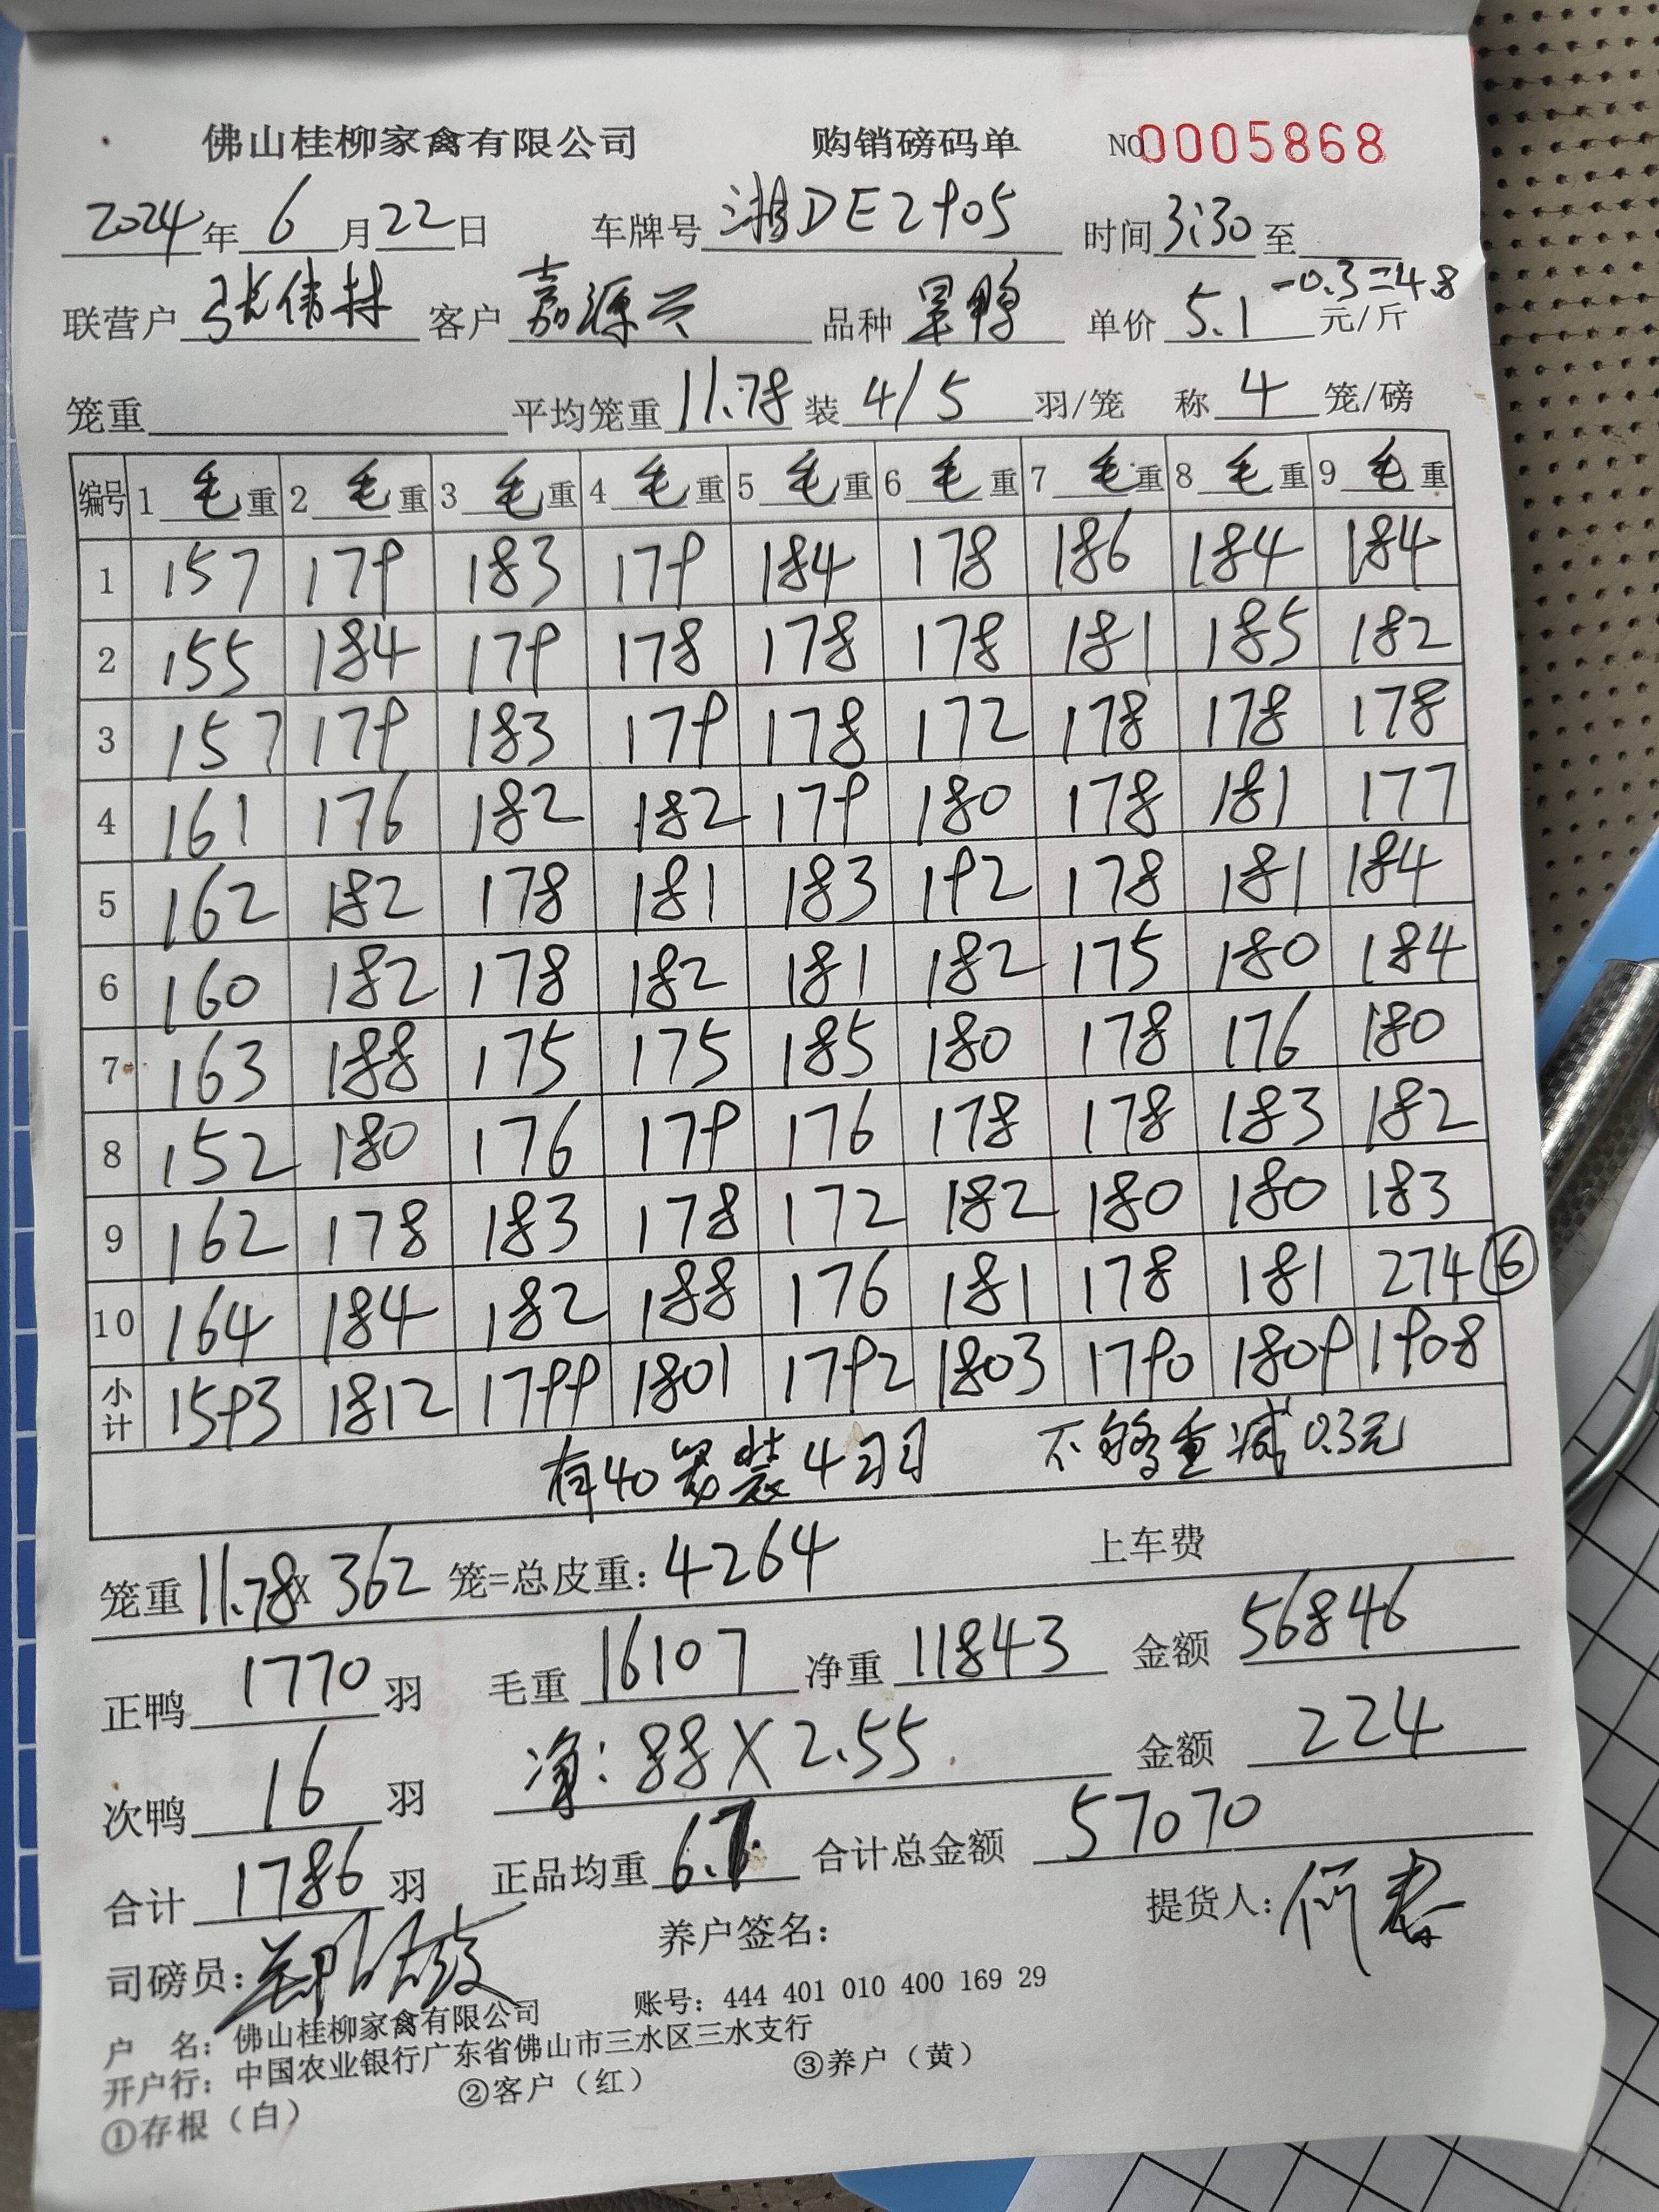 佛山桂柳家禽有限公司 购销磅码单 NO 0005868
2024年6月22日 车牌号 湘DE2905 时间 3:30 至
联营户 张伟林 客户 嘉源兴 品种 旱鸭 单价 5.1 元/斤 -0.3=4.8
笼重 平均笼重 11.78 装 4/5 羽/笼 称 4 笼/磅
编号 1 毛重 2 毛重 3 毛重 4 毛重 5 毛重 6 毛重 7 毛重 8 毛重 9 毛重
1 157 179 183 179 184 178 186 184 184
2 155 184 179 178 178 178 181 185 182
3 157 179 183 179 178 172 178 178 178
4 161 176 182 182 179 180 178 181 177
5 162 182 178 181 183 192 178 181 184
6 160 182 178 182 181 182 175 180 184
7 163 188 175 175 185 180 178 176 180
8 152 180 176 179 176 178 178 183 182
9 162 178 183 178 172 182 180 180 183
10 164 184 182 188 176 181 178 181 274 ⑥
小计 1593 1812 1799 1801 1792 1803 1790 1809 1908
有40 装4羽 不够重减0.3元
笼重 11.78 X 362 笼=总皮重: 4264 上车费
正鸭 1770 羽 毛重 16107 净重 11843 金额 56846
次鸭 16 羽 净: 88 X 2.55 金额 224
合计 1786 羽 正品均重 6.7 合计总金额 57070
司磅员: 养户签名: 提货人: 何春
户 名: 佛山桂柳家禽有限公司 账号: 444 401 010 400 169 29
开户行: 中国农业银行广东省佛山市三水区三水支行
①存根（白） ②客户（红） ③养户（黄）